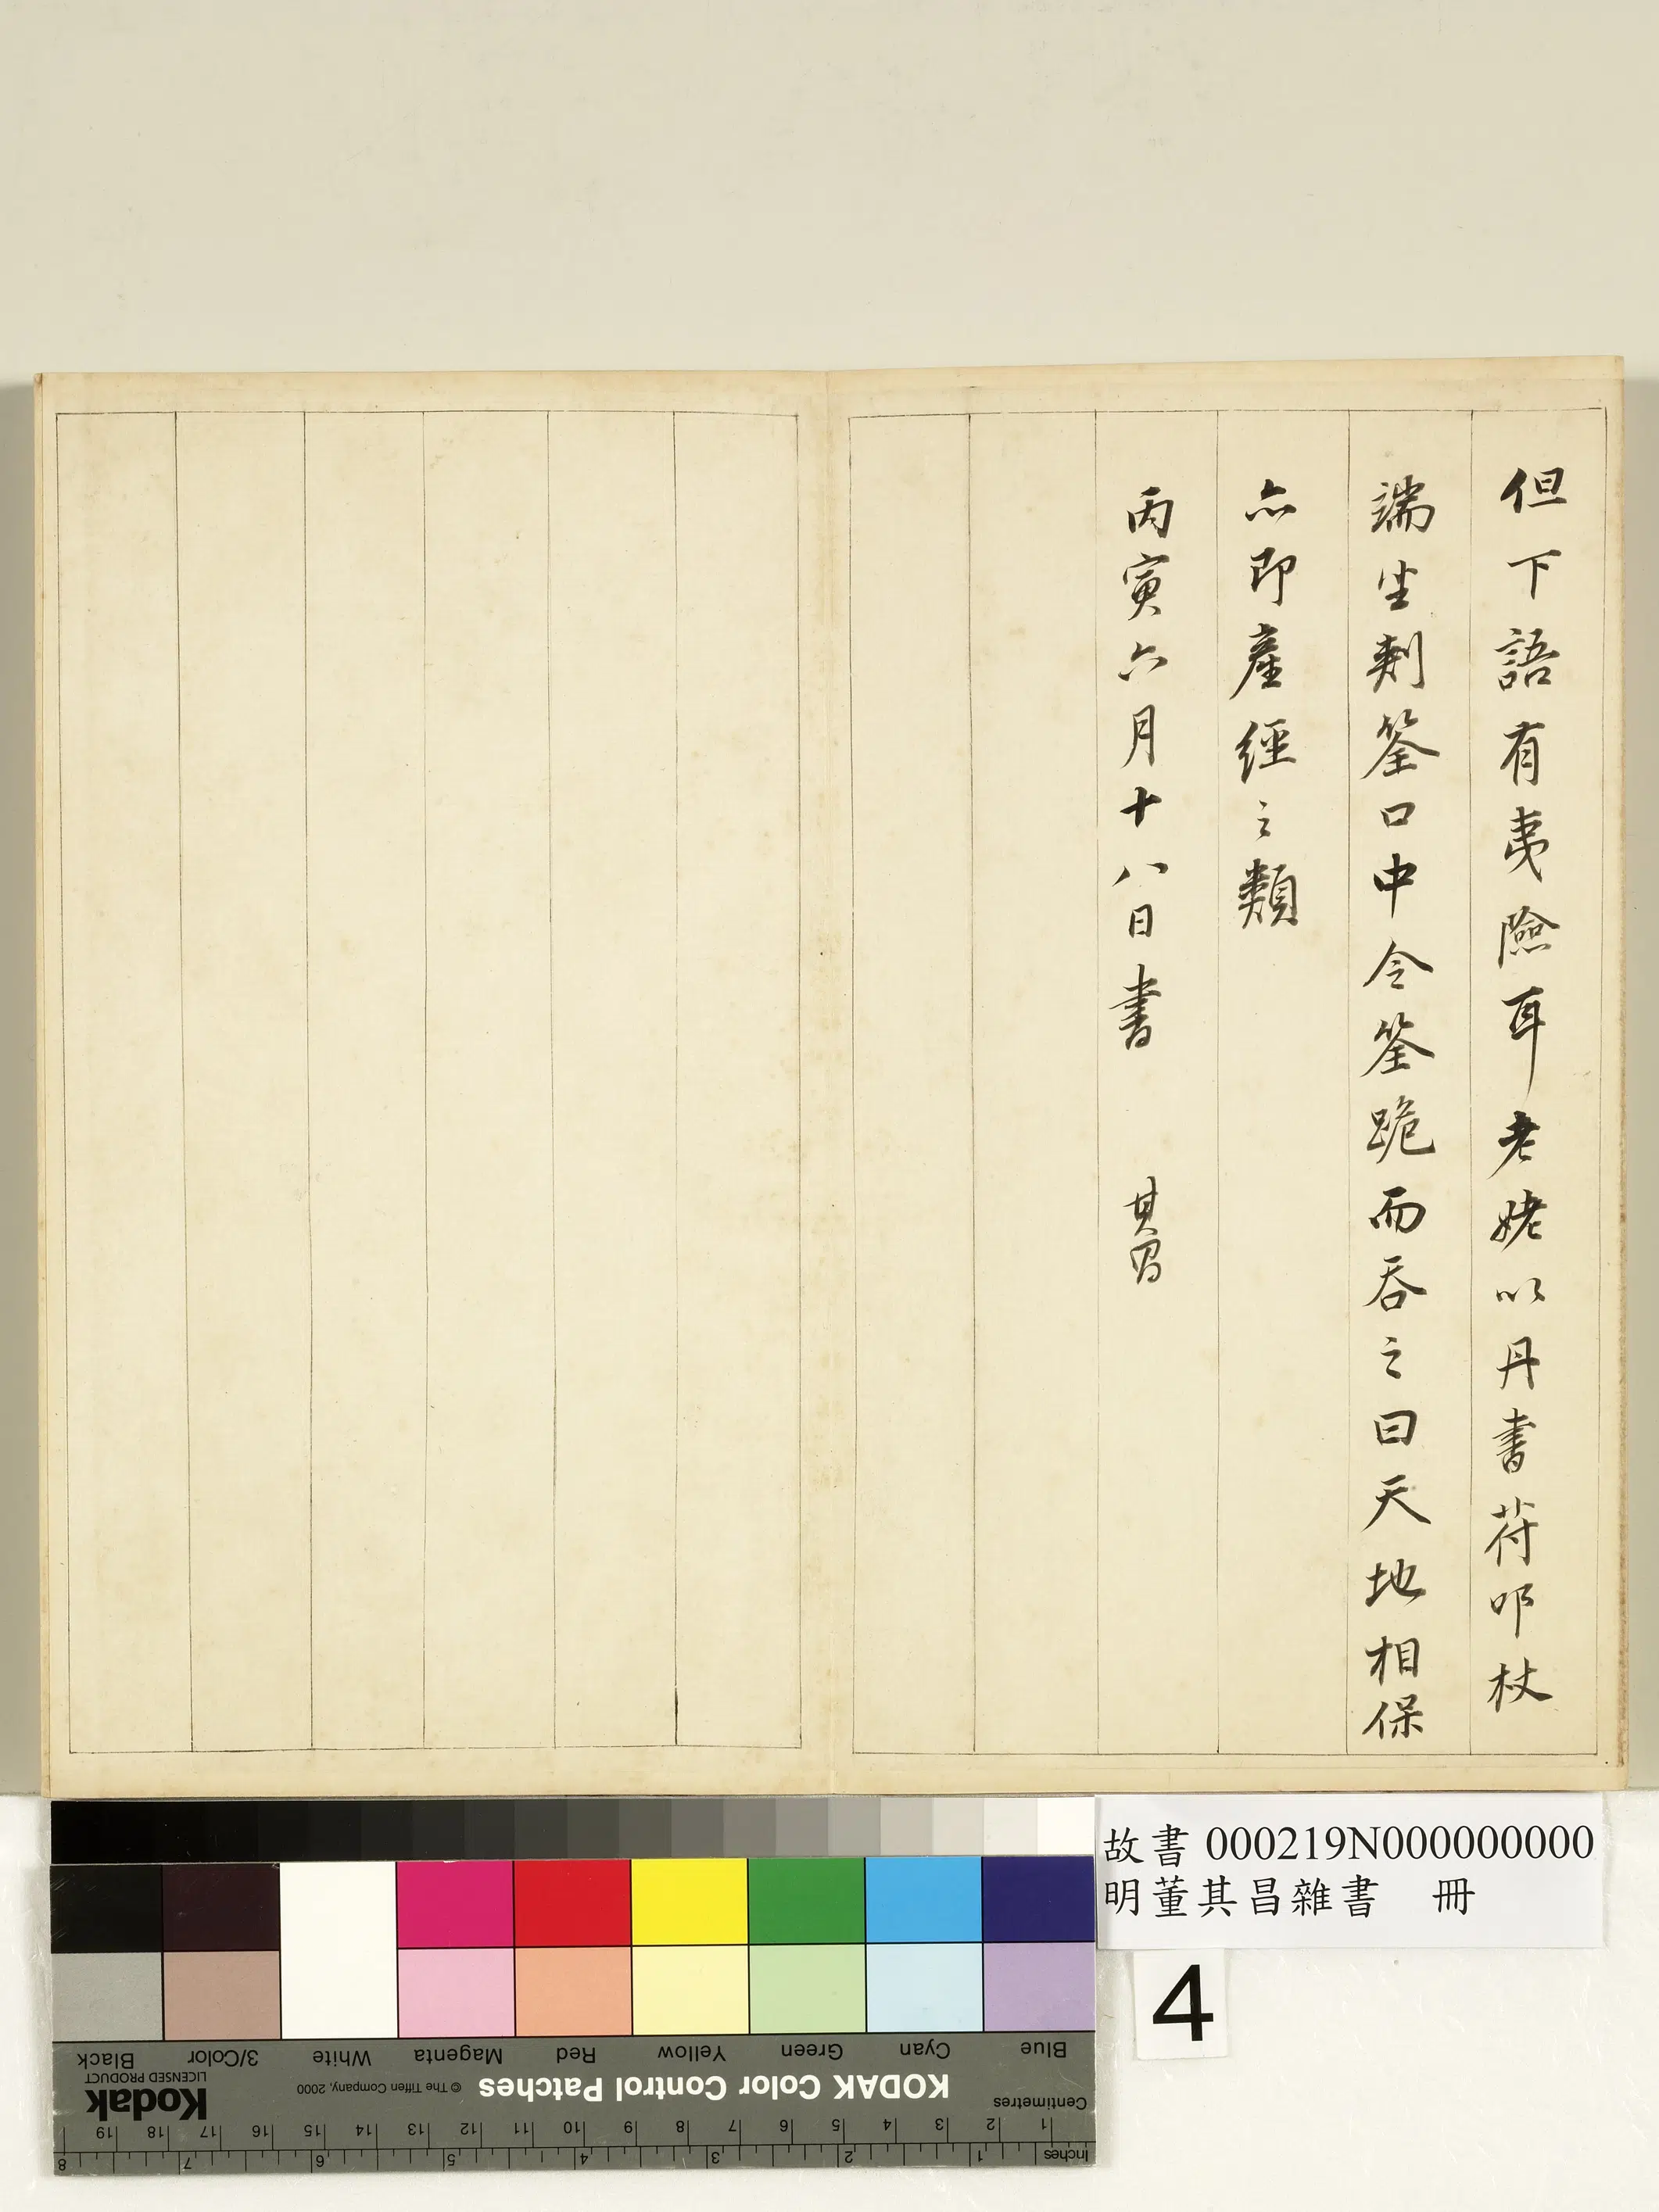 但下語有夷險耳老姥以丹書符叩杖
端坐刺筌口中令筌跪而吞之曰天地相保
亦即產經之類
丙寅六月十八日書 其昌
故書 000219N000000000
明董其昌雜書 冊
4
Blue Cyan Green Yellow Red Magenta White 3/Color Black
KODAK Color Control Patches © The Tiffen Company, 2000 Kodak
LICENSED PRODUCT
Centimetres 1 2 3 4 5 6 7 8 9 10 11 12 13 14 15 16 17 18 19
Inches 1 2 3 4 5 6 7 8